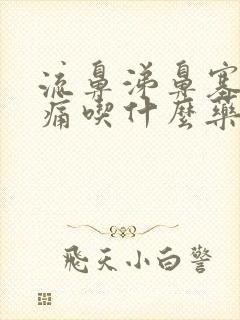 流鼻涕鼻塞
痛喫什麽藥
飛天小白警